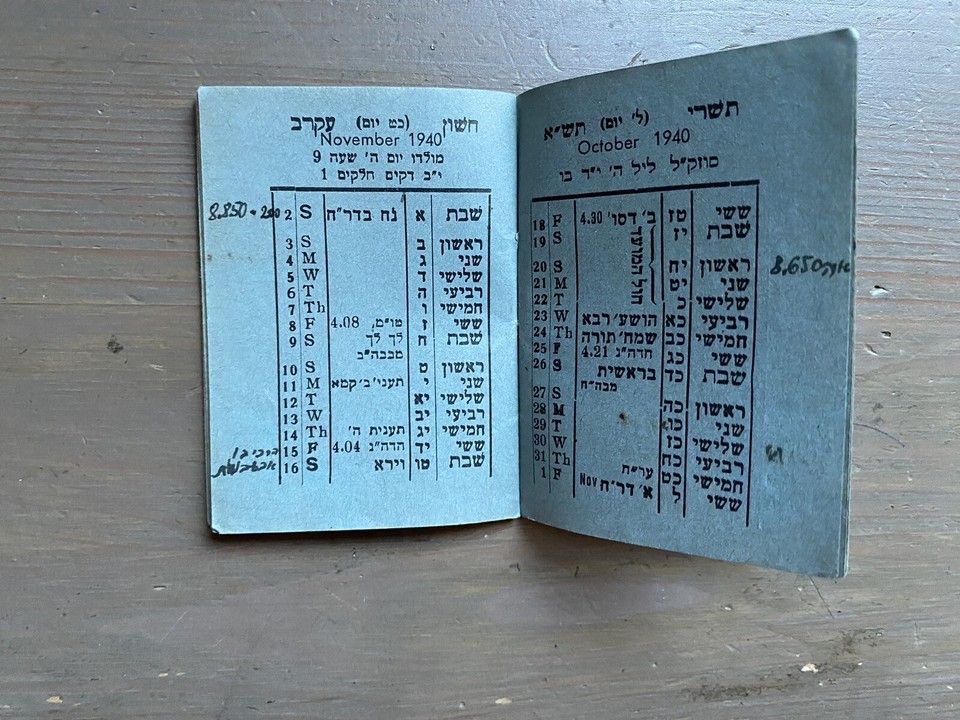 תשרי (ל׳ יום) תש״א
October 1940
סוזק״ל ליל ה׳ י״ד בו
ששי טז ב׳ דסו׳ 4.30 F 18
שבת יז S 19
חול המועד
ראשון יח S 20
שני יט M 21
שלישי כ T 22
רביעי כא הושע׳ רבא W 23
חמישי כב שמח׳ תורה Th 24
ששי כג חדה״נ 4.21 F 25
שבת כד בראשית S 26
מבה״ח
ראשון כה S 27
שני כו M 28
שלישי כז T 29
רביעי כח W 30
חמישי כט ער״ח Th 31
ששי ל א׳ דר״ח Nov F 1
8.650
חשון (כט יום) עקרב
November 1940
מולדו יום ה׳ שעה 9
י״ב דקים חלקים 1
שבת א נח בדר״ח S 2
8.850
ראשון ב S 3
שני ג M 4
שלישי ד T 5
רביעי ה W 6
חמישי ו Th 7
ששי ז 4.08 F 8
שבת ח לך לך S 9
מבבה״ב
ראשון ט S 10
שני י תעני׳ ב׳ קמא M 11
שלישי יא T 12
רביעי יב W 13
חמישי יג תענית ה׳ Th 14
ששי יד הדה״נ 4.04 F 15
שבת טו וירא S 16